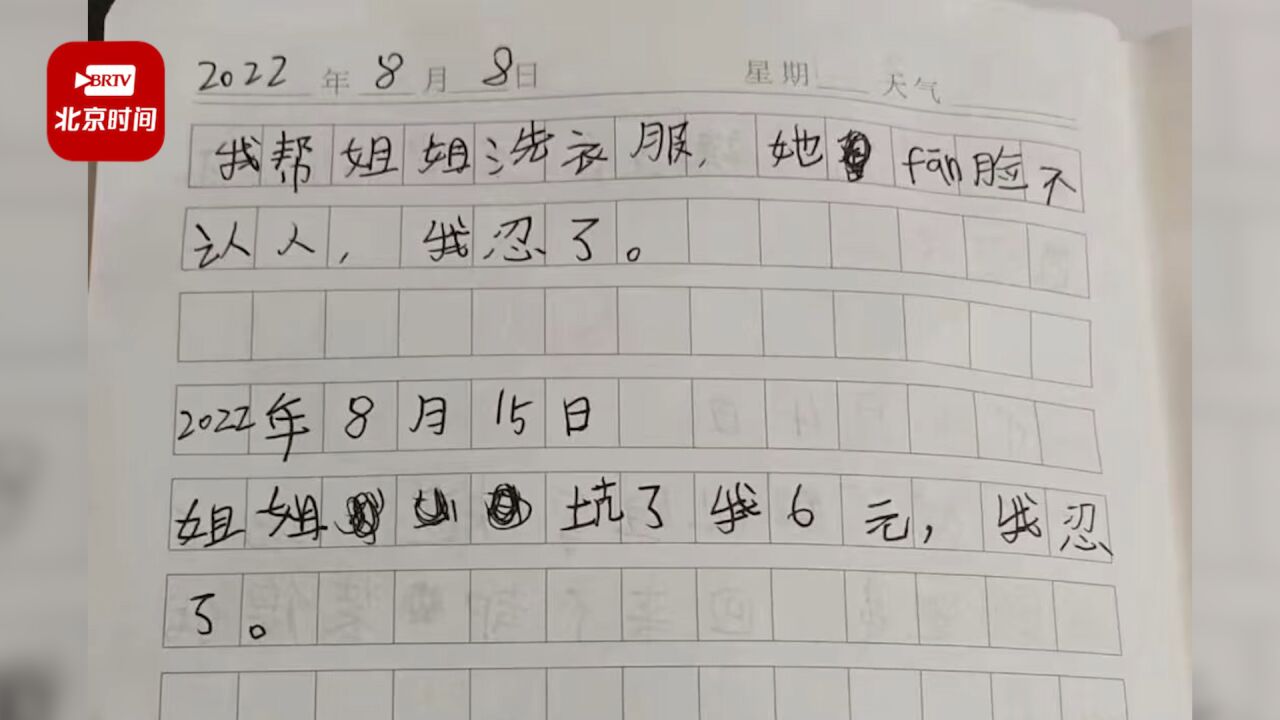 BRTV
北京时间
2022年8月8日 星期 天气
我帮姐姐洗衣服，她fān脸不
认人，我忍了。
2022年8月15日
姐姐坑了我6元，我忍
了。